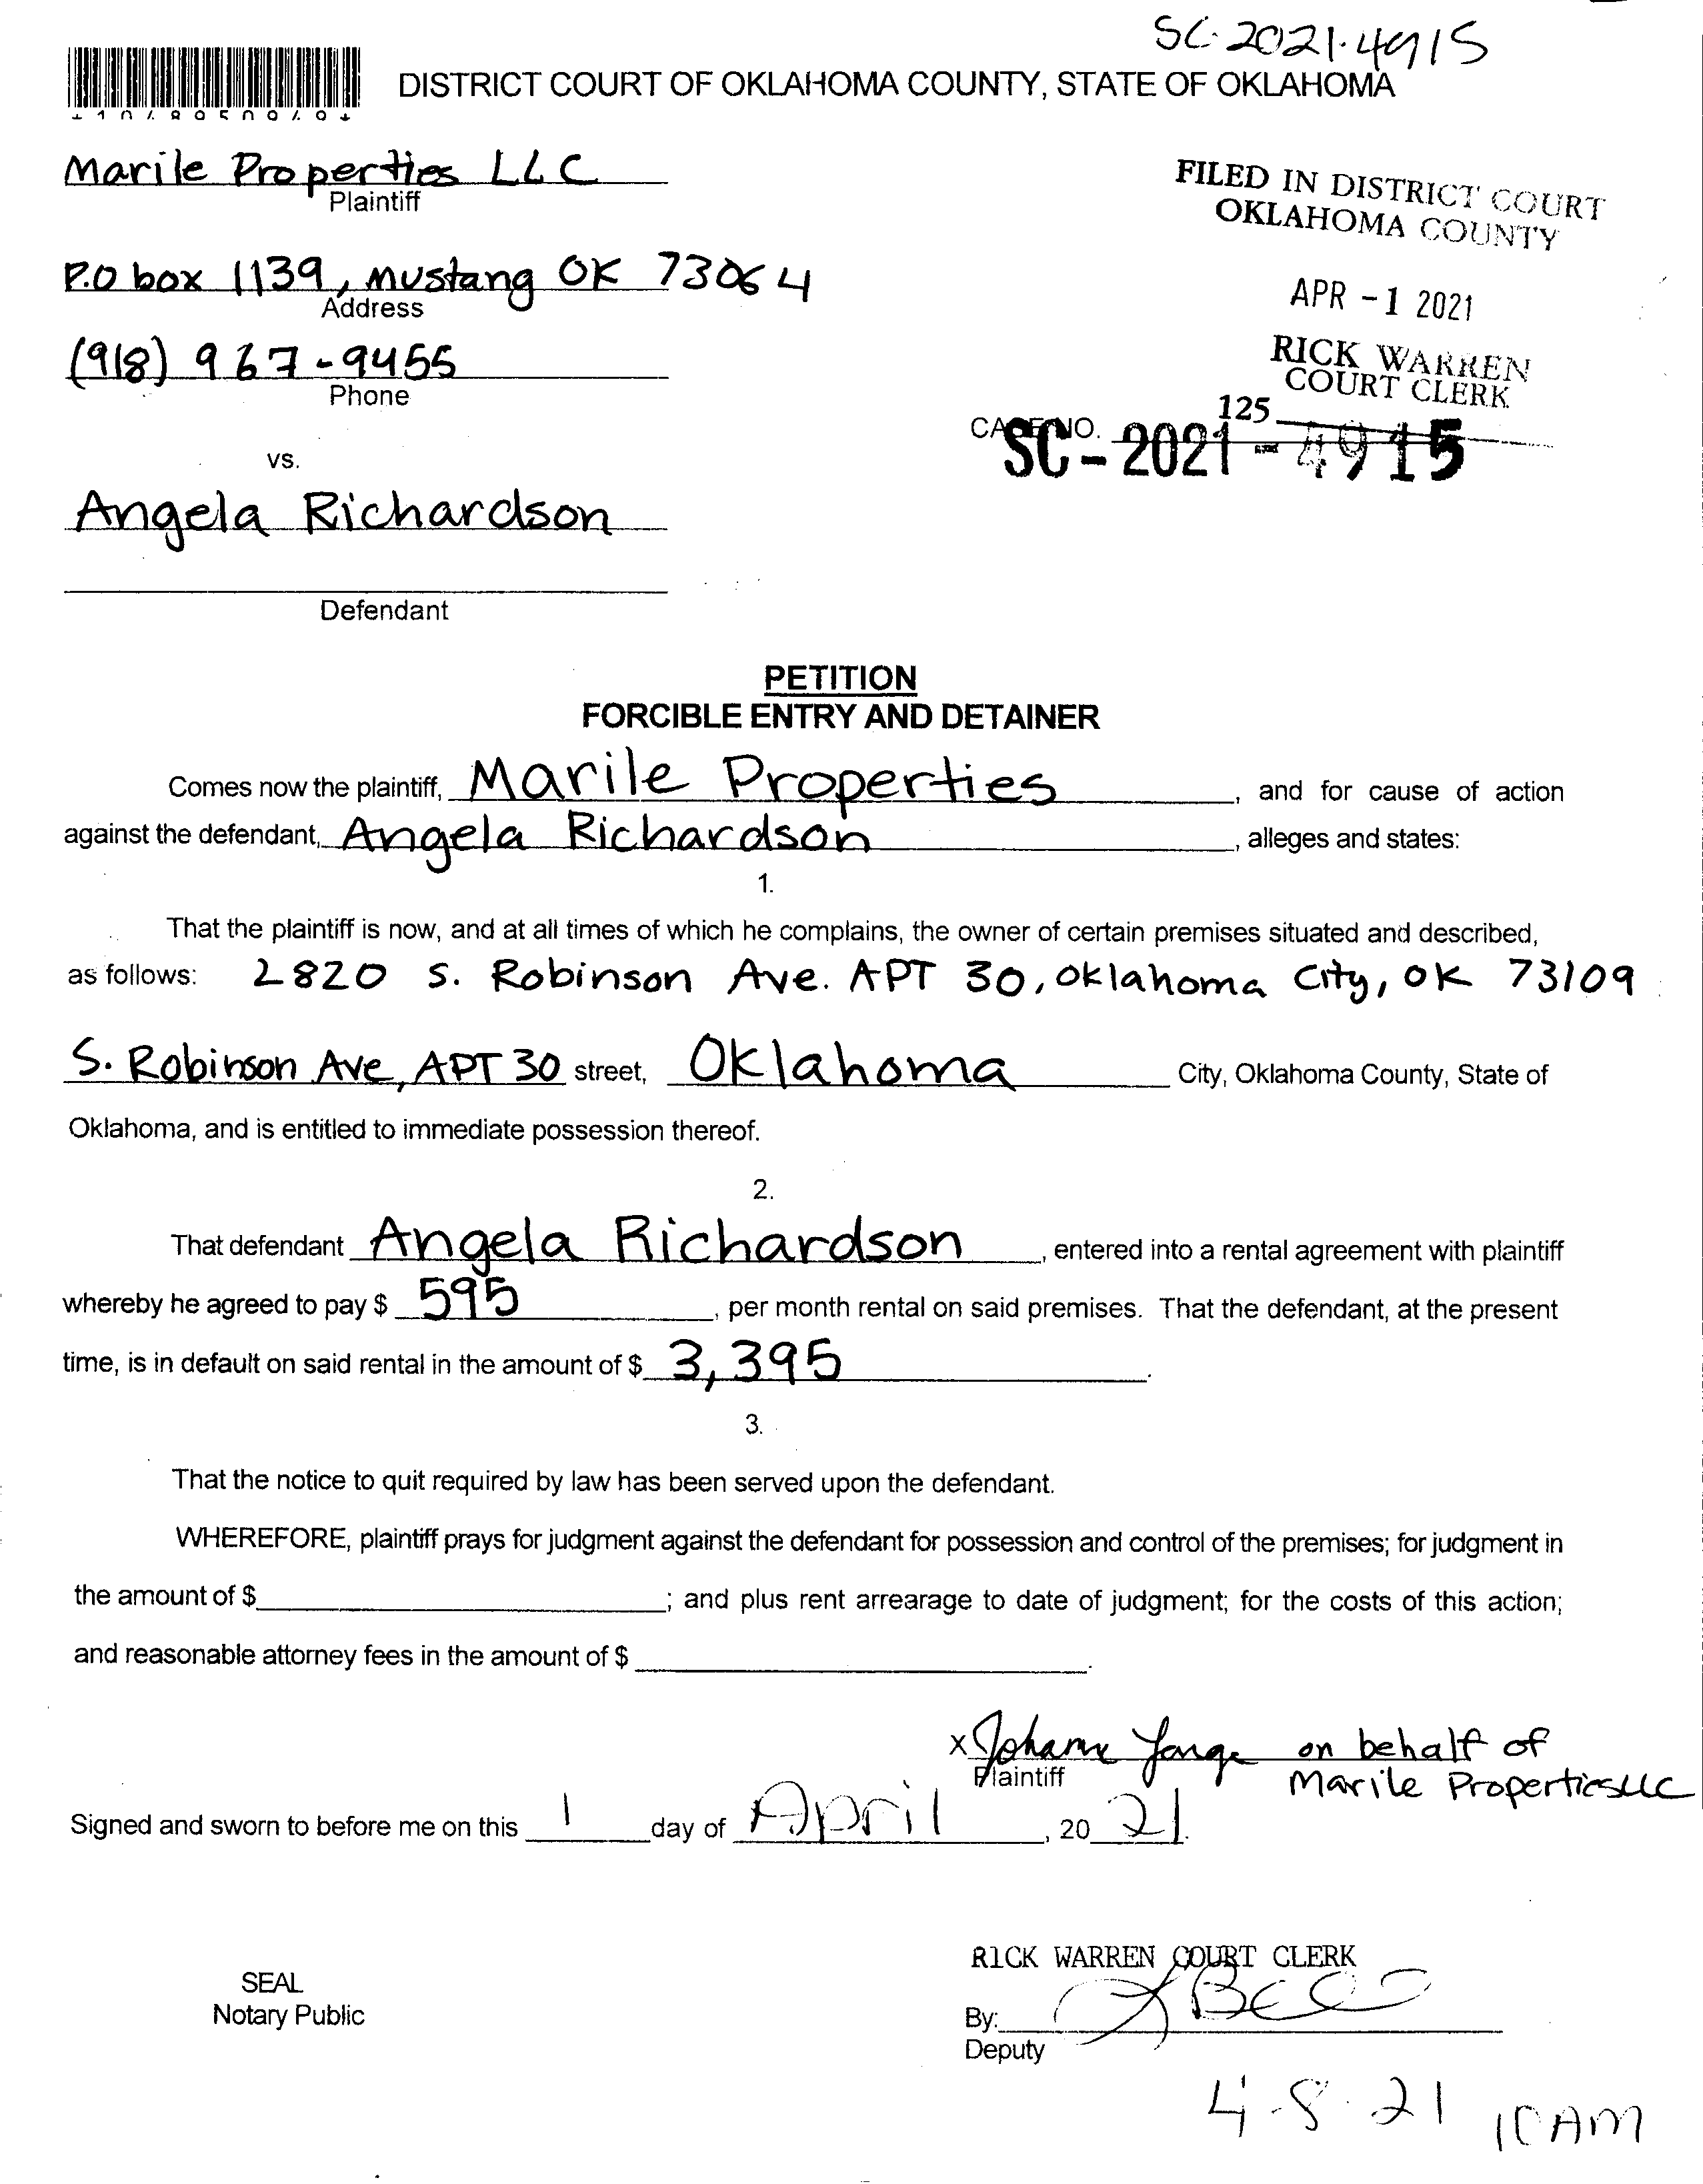 SC-2021-4915
DISTRICT COURT OF OKLAHOMA COUNTY, STATE OF OKLAHOMA
Marile Properties LLC
Plaintiff
FILED IN DISTRICT COURT
OKLAHOMA COUNTY
P.O box 1139, Mustang OK 73064
Address
APR -1 2021
(918) 967-9455
Phone
RICK WARREN
COURT CLERK
125
CASE NO.
SC - 2021 - 4915
vs.
Angela Richardson
Defendant
PETITION
FORCIBLE ENTRY AND DETAINER
Comes now the plaintiff, Marile Properties, and for cause of action
against the defendant, Angela Richardson, alleges and states:
1.
That the plaintiff is now, and at all times of which he complains, the owner of certain premises situated and described,
as follows: 2820 S. Robinson Ave. APT 30, Oklahoma City, OK 73109
S. Robinson Ave, APT 30 street, Oklahoma City, Oklahoma County, State of
Oklahoma, and is entitled to immediate possession thereof.
2.
That defendant Angela Richardson, entered into a rental agreement with plaintiff
whereby he agreed to pay $ 595, per month rental on said premises. That the defendant, at the present
time, is in default on said rental in the amount of $ 3,395.
3.
That the notice to quit required by law has been served upon the defendant.
WHEREFORE, plaintiff prays for judgment against the defendant for possession and control of the premises; for judgment in
the amount of $ ; and plus rent arrearage to date of judgment; for the costs of this action;
and reasonable attorney fees in the amount of $ .
x on behalf of
Plaintiff Marile Properties LLC
Signed and sworn to before me on this 1 day of April, 20 21.
RICK WARREN COURT CLERK
SEAL
Notary Public
By:
Deputy
4-8-21 10AM